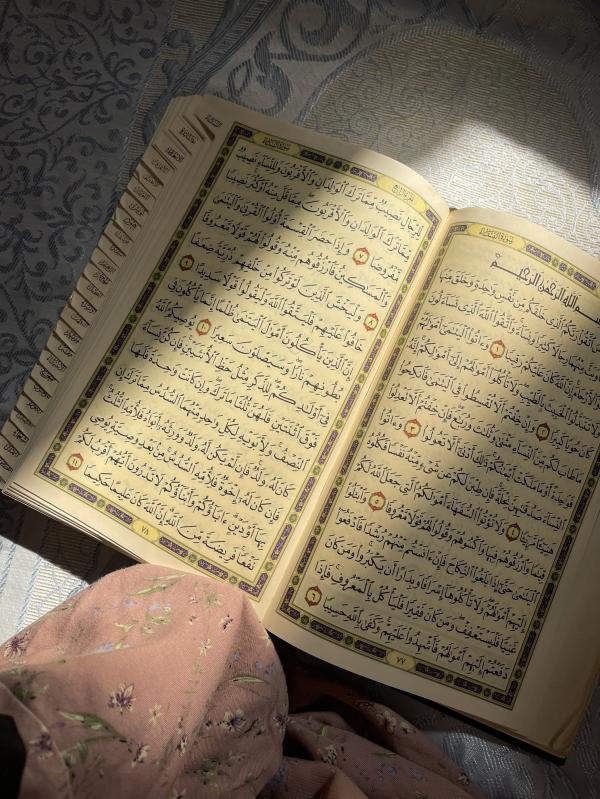 سُورَةُ النِّسَاءِ
بِسْمِ ٱللَّهِ ٱلرَّحْمَٰنِ ٱلرَّحِيمِ
ٱتَّقُوا۟ رَبَّكُمُ ٱلَّذِى خَلَقَكُم مِّن نَّفْسٍ وَٰحِدَةٍ وَخَلَقَ مِنْهَا
مِنْهُمَا رِجَالًا كَثِيرًا وَنِسَآءً ۚ وَٱتَّقُوا۟ ٱللَّهَ ٱلَّذِى تَسَآءَلُونَ
وَٱلْأَرْحَامَ ۚ إِنَّ ٱللَّهَ كَانَ عَلَيْكُمْ رَقِيبًا ١ وَءَاتُوا۟ ٱلْيَتَٰمَىٰٓ أَمْوَٰلَهُمْ
تَتَبَدَّلُوا۟ ٱلْخَبِيثَ بِٱلطَّيِّبِ ۖ وَلَا تَأْكُلُوٓا۟ أَمْوَٰلَهُمْ إِلَىٰٓ أَمْوَٰلِكُمْ ۚ إِنَّهُۥ
كَانَ حُوبًا كَبِيرًا ٢ وَإِنْ خِفْتُمْ أَلَّا تُقْسِطُوا۟ فِى ٱلْيَتَٰمَىٰ فَٱنكِحُوا۟
مَا طَابَ لَكُم مِّنَ ٱلنِّسَآءِ مَثْنَىٰ وَثُلَٰثَ وَرُبَٰعَ ۖ فَإِنْ خِفْتُمْ أَلَّا تَعْدِلُوا۟
فَوَٰحِدَةً أَوْ مَا مَلَكَتْ أَيْمَٰنُكُمْ ۚ ذَٰلِكَ أَدْنَىٰٓ أَلَّا تَعُولُوا۟ ٣ وَءَاتُوا۟
ٱلنِّسَآءَ صَدُقَٰتِهِنَّ نِحْلَةً ۚ فَإِن طِبْنَ لَكُمْ عَن شَىْءٍ مِّنْهُ نَفْسًا فَكُلُوهُ
هَنِيٓـًٔا مَّرِيٓـًٔا ٤ وَلَا تُؤْتُوا۟ ٱلسُّفَهَآءَ أَمْوَٰلَكُمُ ٱلَّتِى جَعَلَ ٱللَّهُ لَكُمْ
قِيَٰمًا وَٱرْزُقُوهُمْ فِيهَا وَٱكْسُوهُمْ وَقُولُوا۟ لَهُمْ قَوْلًا مَّعْرُوفًا ٥ وَٱبْتَلُوا۟
ٱلْيَتَٰمَىٰ حَتَّىٰٓ إِذَا بَلَغُوا۟ ٱلنِّكَاحَ فَإِنْ ءَانَسْتُم مِّنْهُمْ رُشْدًا فَٱدْفَعُوٓا۟
إِلَيْهِمْ أَمْوَٰلَهُمْ ۖ وَلَا تَأْكُلُوهَآ إِسْرَافًا وَبِدَارًا أَن يَكْبَرُوا۟ ۚ وَمَن كَانَ
غَنِيًّا فَلْيَسْتَعْفِفْ ۖ وَمَن كَانَ فَقِيرًا فَلْيَأْكُلْ بِٱلْمَعْرُوفِ ۚ فَإِذَا
دَفَعْتُمْ إِلَيْهِمْ أَمْوَٰلَهُمْ فَأَشْهِدُوا۟ عَلَيْهِمْ ۚ وَكَفَىٰ بِٱللَّهِ حَسِيبًا ٦
٧٧
الجزء الرابع
سُورَةُ النِّسَاءِ
لِّلرِّجَالِ نَصِيبٌ مِّمَّا تَرَكَ ٱلْوَٰلِدَانِ وَٱلْأَقْرَبُونَ وَلِلنِّسَآءِ نَصِيبٌ
مِّمَّا تَرَكَ ٱلْوَٰلِدَانِ وَٱلْأَقْرَبُونَ مِمَّا قَلَّ مِنْهُ أَوْ كَثُرَ ۚ نَصِيبًا
مَّفْرُوضًا ٧ وَإِذَا حَضَرَ ٱلْقِسْمَةَ أُو۟لُوا۟ ٱلْقُرْبَىٰ وَٱلْيَتَٰمَىٰ
وَٱلْمَسَٰكِينُ فَٱرْزُقُوهُم مِّنْهُ وَقُولُوا۟ لَهُمْ قَوْلًا مَّعْرُوفًا
٨ وَلْيَخْشَ ٱلَّذِينَ لَوْ تَرَكُوا۟ مِنْ خَلْفِهِمْ ذُرِّيَّةً ضِعَٰفًا
خَافُوا۟ عَلَيْهِمْ فَلْيَتَّقُوا۟ ٱللَّهَ وَلْيَقُولُوا۟ قَوْلًا سَدِيدًا ٩
إِنَّ ٱلَّذِينَ يَأْكُلُونَ أَمْوَٰلَ ٱلْيَتَٰمَىٰ ظُلْمًا إِنَّمَا يَأْكُلُونَ فِى
بُطُونِهِمْ نَارًا ۖ وَسَيَصْلَوْنَ سَعِيرًا ١٠ يُوصِيكُمُ ٱللَّهُ
فِىٓ أَوْلَٰدِكُمْ ۖ لِلذَّكَرِ مِثْلُ حَظِّ ٱلْأُنثَيَيْنِ ۚ فَإِن كُنَّ نِسَآءً
فَوْقَ ٱثْنَتَيْنِ فَلَهُنَّ ثُلُثَا مَا تَرَكَ ۖ وَإِن كَانَتْ وَٰحِدَةً فَلَهَا
ٱلنِّصْفُ ۚ وَلِأَبَوَيْهِ لِكُلِّ وَٰحِدٍ مِّنْهُمَا ٱلسُّدُسُ مِمَّا تَرَكَ إِن
كَانَ لَهُۥ وَلَدٌ ۚ فَإِن لَّمْ يَكُن لَّهُۥ وَلَدٌ وَوَرِثَهُۥٓ أَبَوَاهُ فَلِأُمِّهِ ٱلثُّلُثُ ۚ
فَإِن كَانَ لَهُۥٓ إِخْوَةٌ فَلِأُمِّهِ ٱلسُّدُسُ ۚ مِنۢ بَعْدِ وَصِيَّةٍ يُوصِى
بِهَآ أَوْ دَيْنٍ ۗ ءَابَآؤُكُمْ وَأَبْنَآؤُكُمْ لَا تَدْرُونَ أَيُّهُمْ أَقْرَبُ لَكُمْ
نَفْعًا ۚ فَرِيضَةً مِّنَ ٱللَّهِ ۗ إِنَّ ٱللَّهَ كَانَ عَلِيمًا حَكِيمًا ١١
٧٨